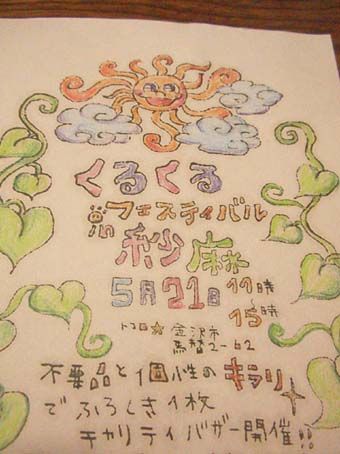 くるくる
in フェスティバル
紗麻
5月21日 11時
〜15時
トコロ★ 金沢市
馬替2-62
不要品と個性のキラリ
でふろしき1枚
チャリティバザー開催!!